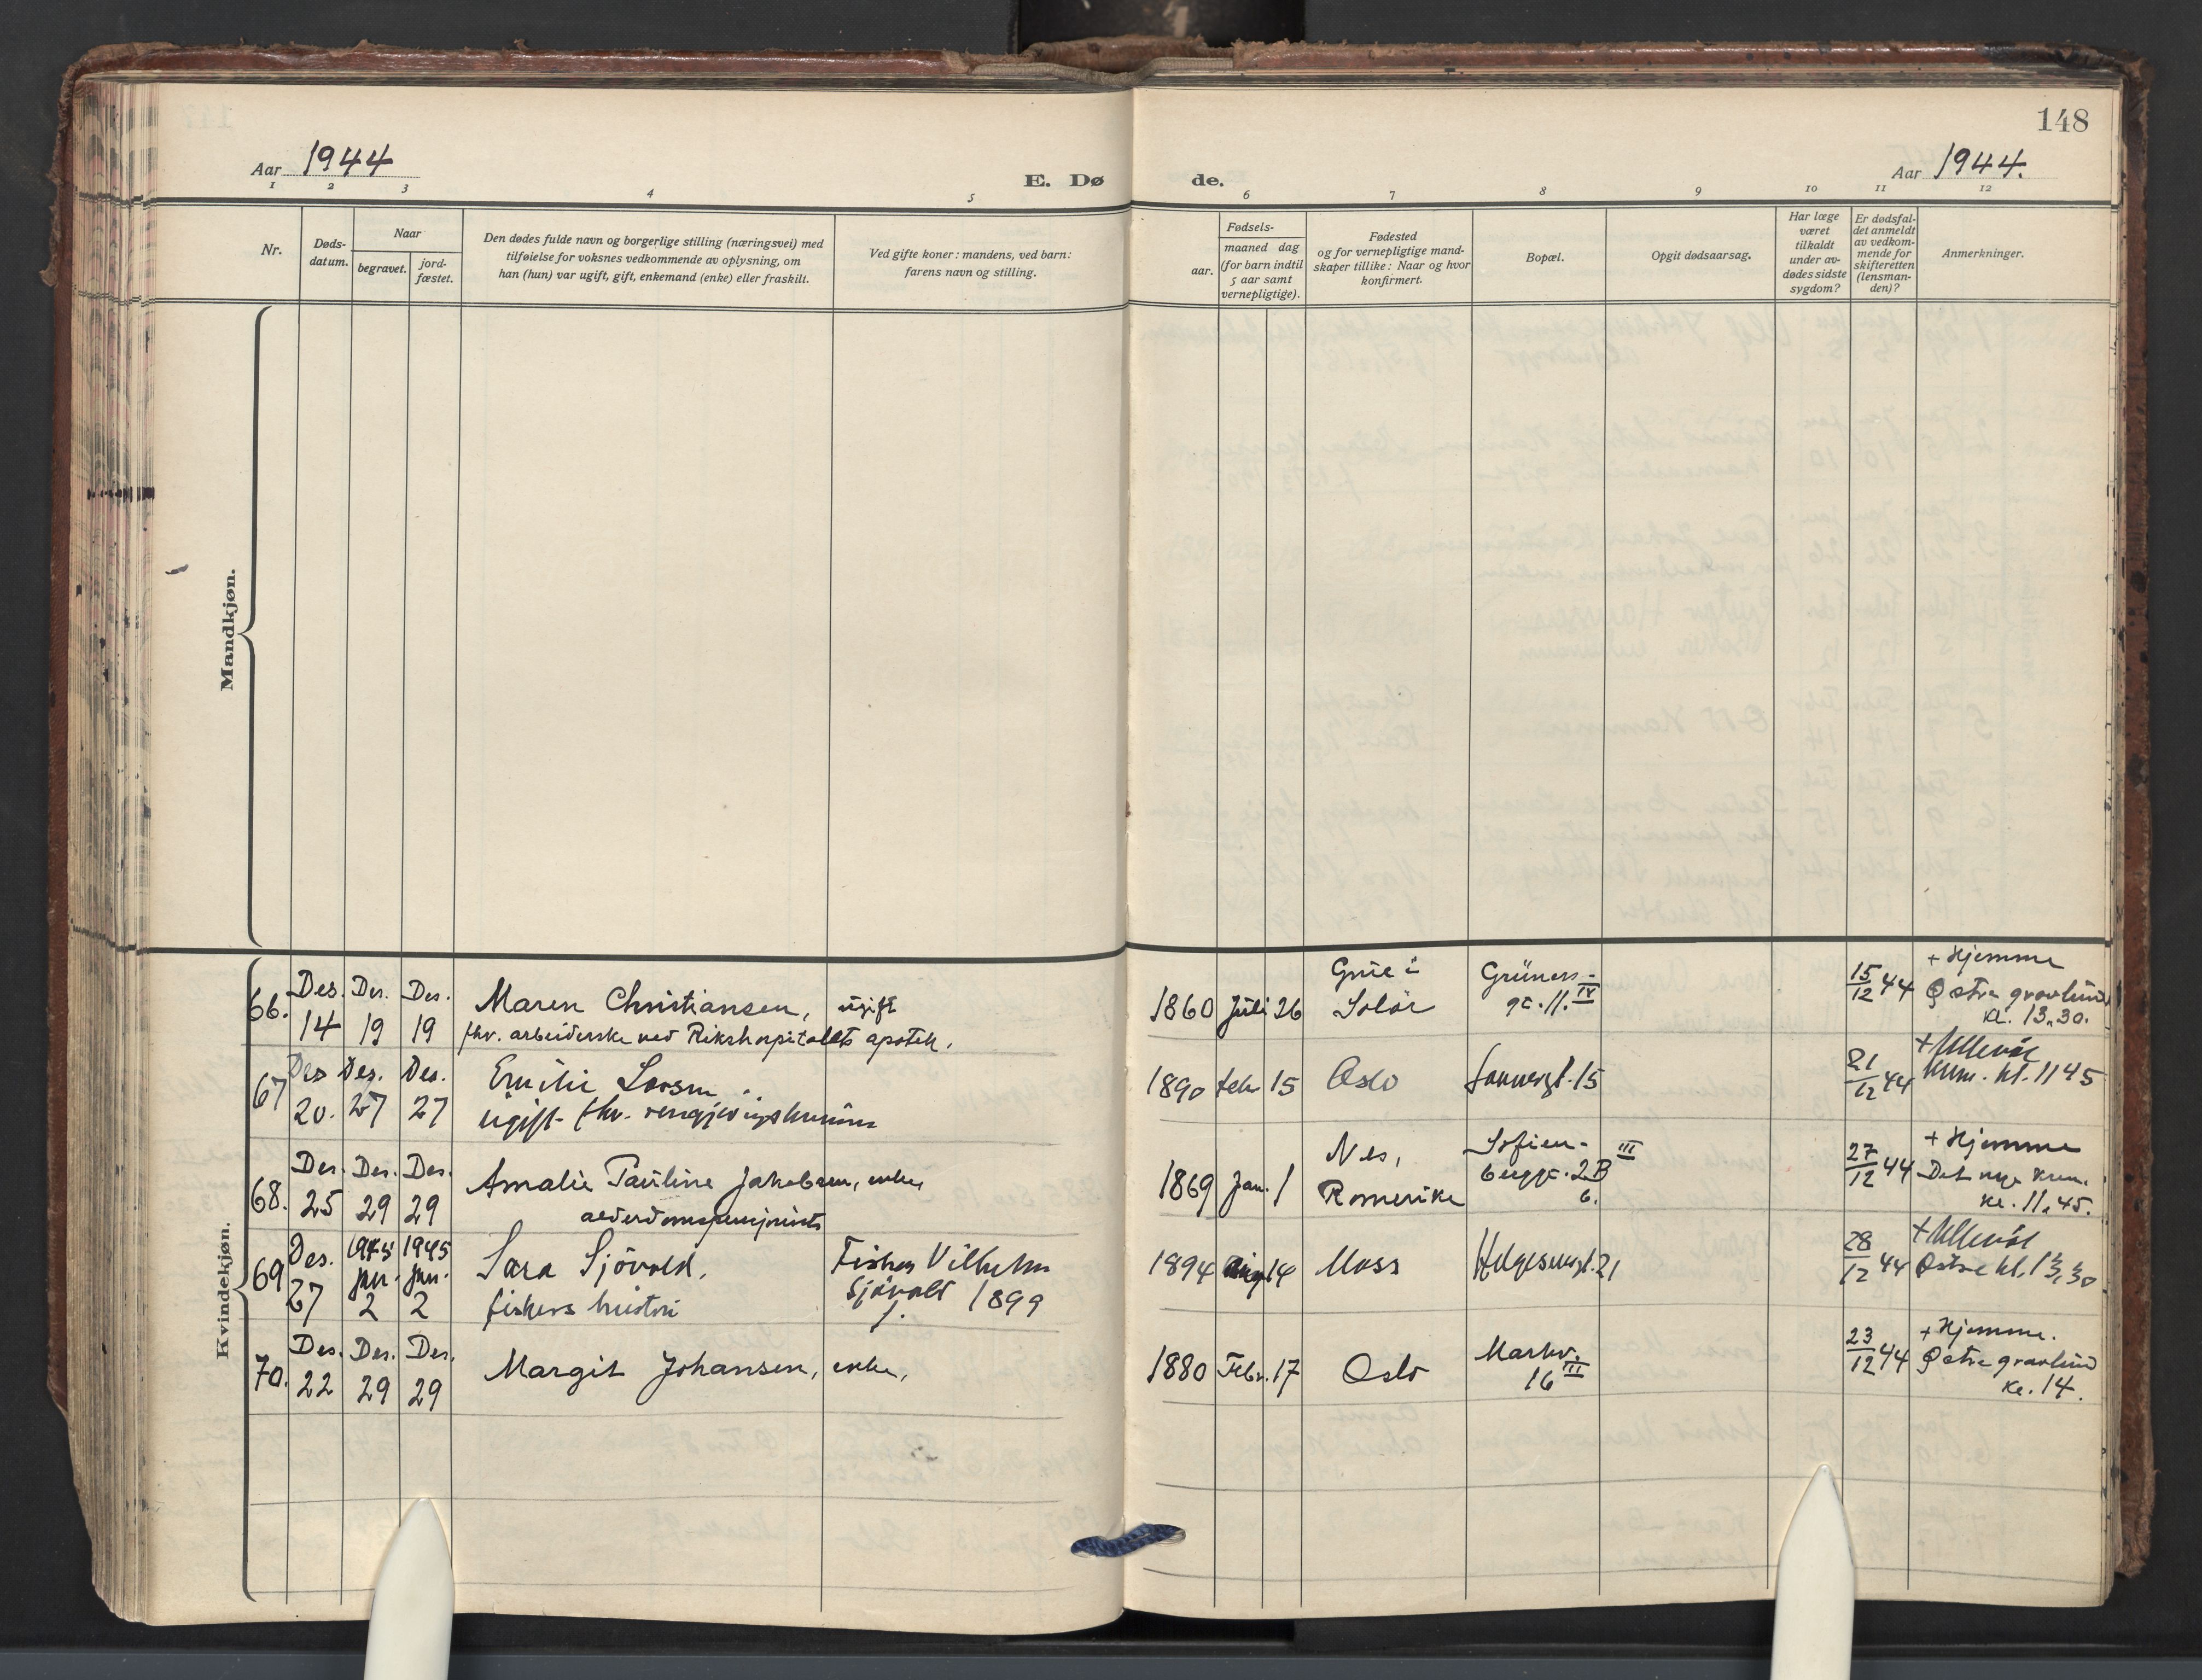 148
Aar 1944
Aar 1944.
E. Dø de.
1 2 3 4 5 6 7 8 9 10 11 12
Nr.
Døds-
datum.
Naar
begravet.
jord-
fæstet.
Den dødes fulde navn og borgerlige stilling (næringsvei) med
tilføielse for voksnes vedkommende av oplysning, om
han (hun) var ugift, gift, enkemand (enke) eller fraskilt.
Ved gifte koner: mandens, ved barn:
farens navn og stilling.
Fødsels-
aar.
maaned dag
(for barn indtil
5 aar samt
vernepligtige).
Fødested
og for vernepligtige mand-
skaper tillike: Naar og hvor
konfirmert.
Bopæl.
Opgit dødsaarsag.
Har læge
været
tilkaldt
under av-
dødes sidste
sygdom?
Er dødsfal-
det anmeldt
av vedkom-
mende for
skifteretten
(lensman-
den)?
Anmerkninger.
Mandkjøn.
Kvindekjøn.
66. Des. 14 Des. 19 Des. 19
Maren Christiansen, ugift
fhv. arbeiderske ved Rikshospitalets apotek.
1860 Juli 26
Grue i
Solør
Grüners-
gt. 11. IV
15/12 44
+ Hjemme
Østre gravlund
kl. 13.30.
67 Des 20. Des. 27 Des. 27
Emilie Larsen
ugift fhv. rengjøringskvinne
1890 febr 15
Oslo
Sannergt. 15
21/12 44
+ Ullevål
Krem. kl. 11 45
68. Des. 25 Des. 29 Des. 29
Amalie Pauline Jakobsen, enke,
alderdomspensjonist
1869 Jan. 1
Nes,
Romerike
Sofien-
berggt. 2B III
6.
27/12 44
+ Hjemme
Det nye krem.
kl. 11.45.
69 Des. 27 1945 jan. 2 1945 jan. 2
Sara Sjövold,
fiskers hustru
Fisker Vilhelm
Sjövold
f. 1899
1894 aug 14
Moss
Helgesensgt. 21
28/12 44
+ Ullevål
Østre kl. 13,30
70. Des. 22 Des. 29 Des. 29
Margit Johansen, enke,
1880 Febr. 17
Oslo
Markv.
16 III
23/12 44
+ Hjemme.
Østre gravlund
kl. 14.